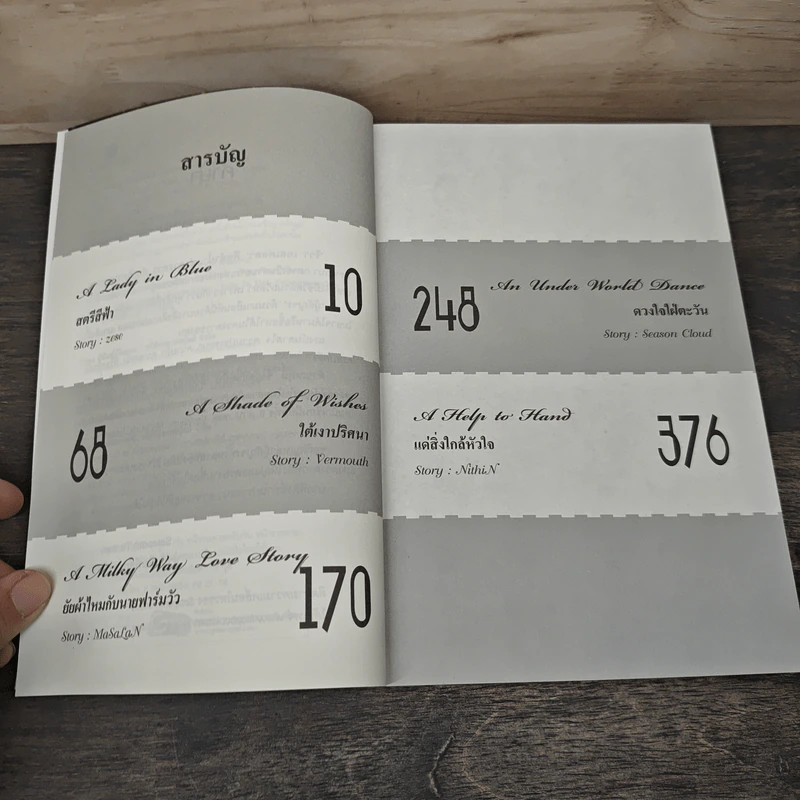 สารบัญ
A Lady in Blue
สตรีสีฟ้า
Story : zese
10
A Shade of Wishes
ใต้เงาปริศนา
Story : Vermouth
68
A Milky Way Love Story
ยัยผ้าไหมกับนายฟาร์มวัว
Story : MaSaLaN
170
248
An Under World Dance
ดวงใจใฝ่ตะวัน
Story : Season Cloud
A Help to Hand
แด่สิ่งใกล้หัวใจ
Story : NithiN
376